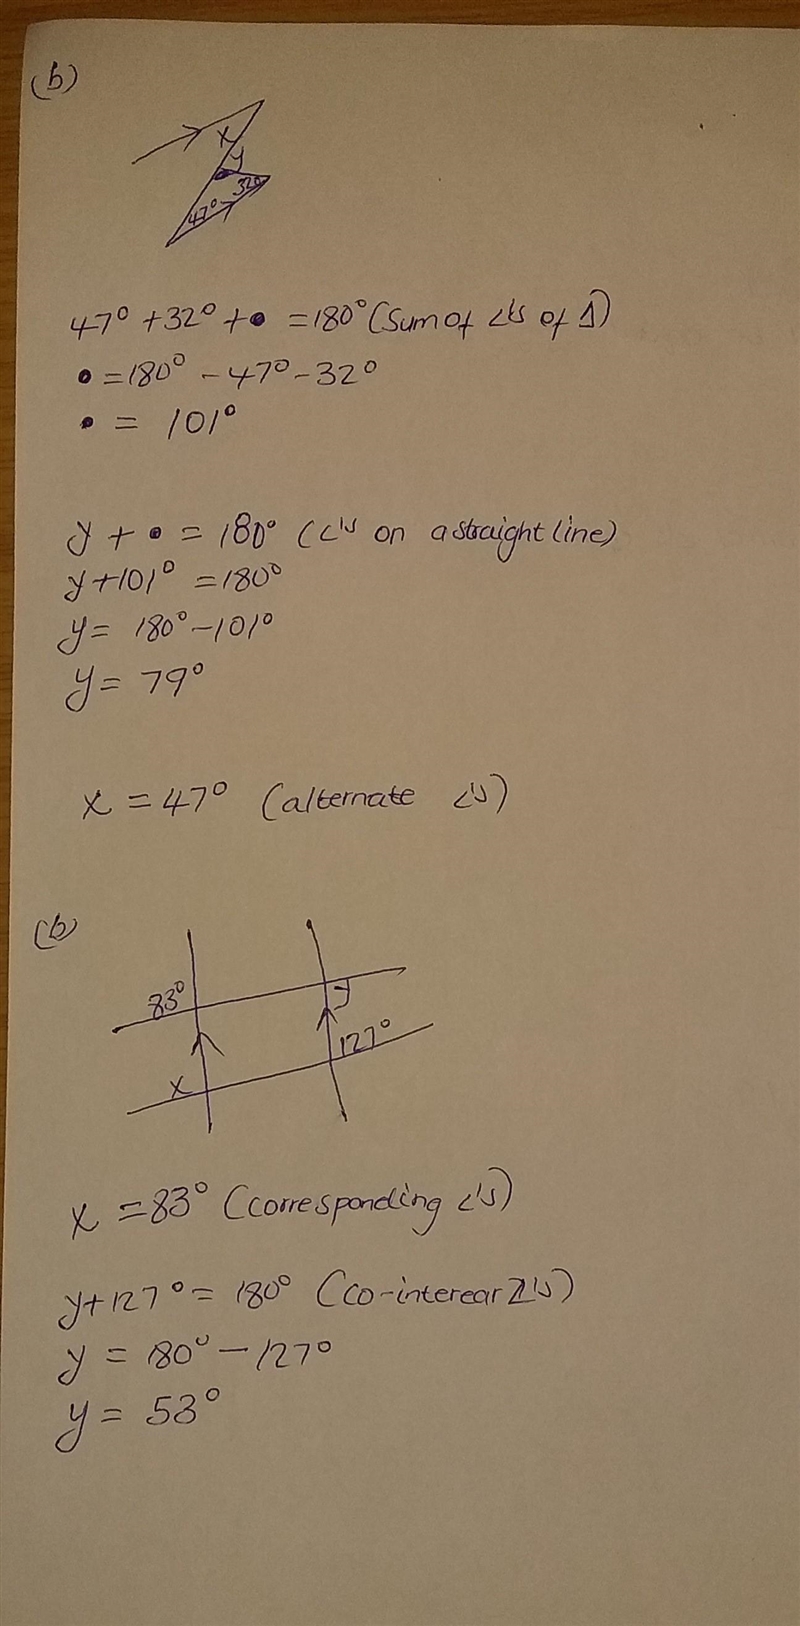 (b)
x
y
32°
47°
47° + 32° + • = 180° (Sum of <'s of Δ)
• = 180° - 47° - 32°
• = 101°
y + • = 180° (<'s on a straight line)
y + 101° = 180°
y = 180° - 101°
y = 79°
x = 47° (alternate <'s)
(b)
83°
y
127°
x
x = 83° (corresponding <'s)
y + 127° = 180° (co-interear <'s)
y = 180° - 127°
y = 53°